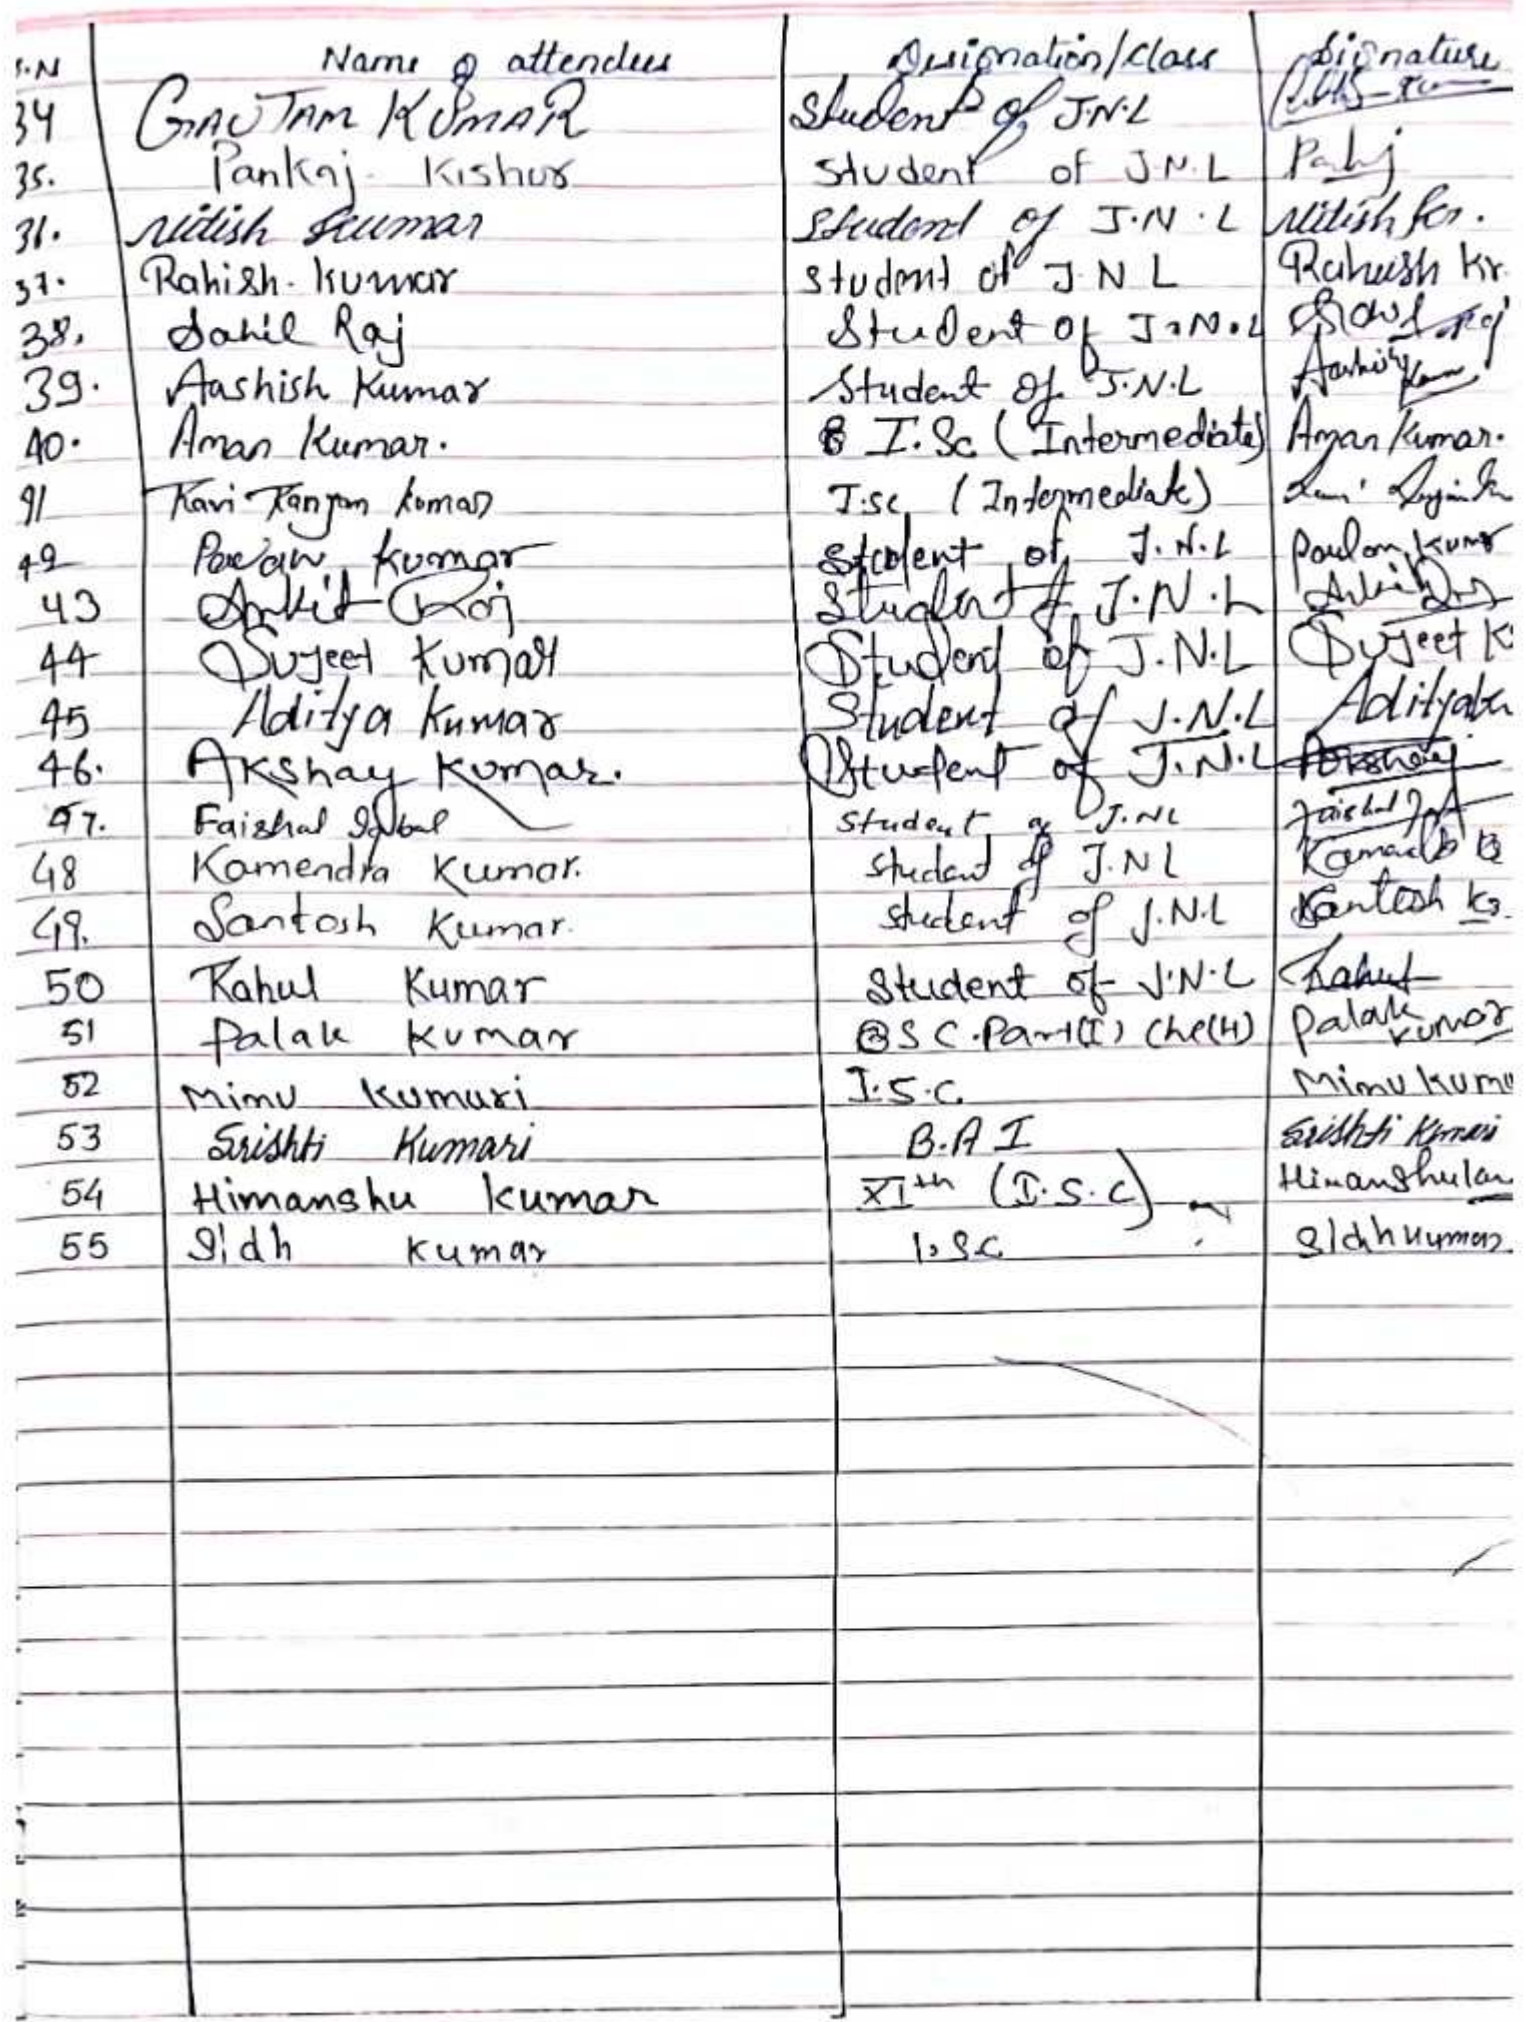 S.N Name of attendees Designation/Class Signature
34 GAUTAM KUMAR Student of J.N.L
35. Pankaj Kishor Student of J.N.L Pankaj
36. Nitish Kumar Student of J.N.L Nitish Kr.
37. Rahish Kumar Student of J N L Rahish Kr.
38. Sahil Raj Student of J.N.L Raj
39. Aashish Kumar Student of J.N.L Aashish Kumar
40. Aman Kumar. I.Sc (Intermediate) Aman Kumar.
41 Ravi Ranjan Kumar I.sc (Intermediate)
42 Kumar Student of J.N.L Kumar
43 Ankit Raj Student of J.N.L Ankit Raj
44 Sujeet Kumar Student of J.N.L Sujeet K
45 Aditya Kumar Student of J.N.L Aditya
46. Akshay Kumar. Student of J.N.L Akshay
47. Faishal Iqbal Student of J.NL Faishal
48 Kamendra Kumar. Student of J.NL
49. Santosh Kumar. Student of J.N.L Santosh Kr.
50 Rahul Kumar Student of J.N.L Rahul
51 Palak Kumar BSC.Part(I) Che(H) Palak Kumar
52 Minu Kumari I.S.C Minu Kum
53 Srishti Kumari B.A I Srishti Kumari
54 Himanshu Kumar XIth (I.S.C) Himanshu
55 Sidh Kumar I.SC Sidh Kumar